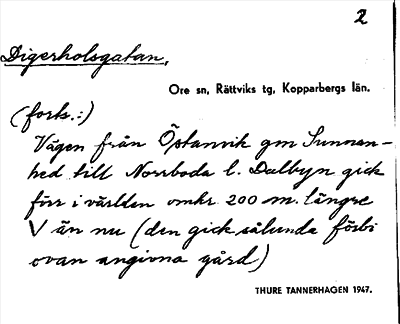 2
Digerholsgatan,
Ore sn, Rättviks tg, Kopparbergs län.
(forts.:)
Vägen från Östanvik gm Sunnan-
hed till Norrboda l. Dalbyn gick
förr i världen omkr. 200 m. längre
V än nu (den gick sålunda förbi
ovan angivna gård)
THURE TANNERHAGEN 1947.